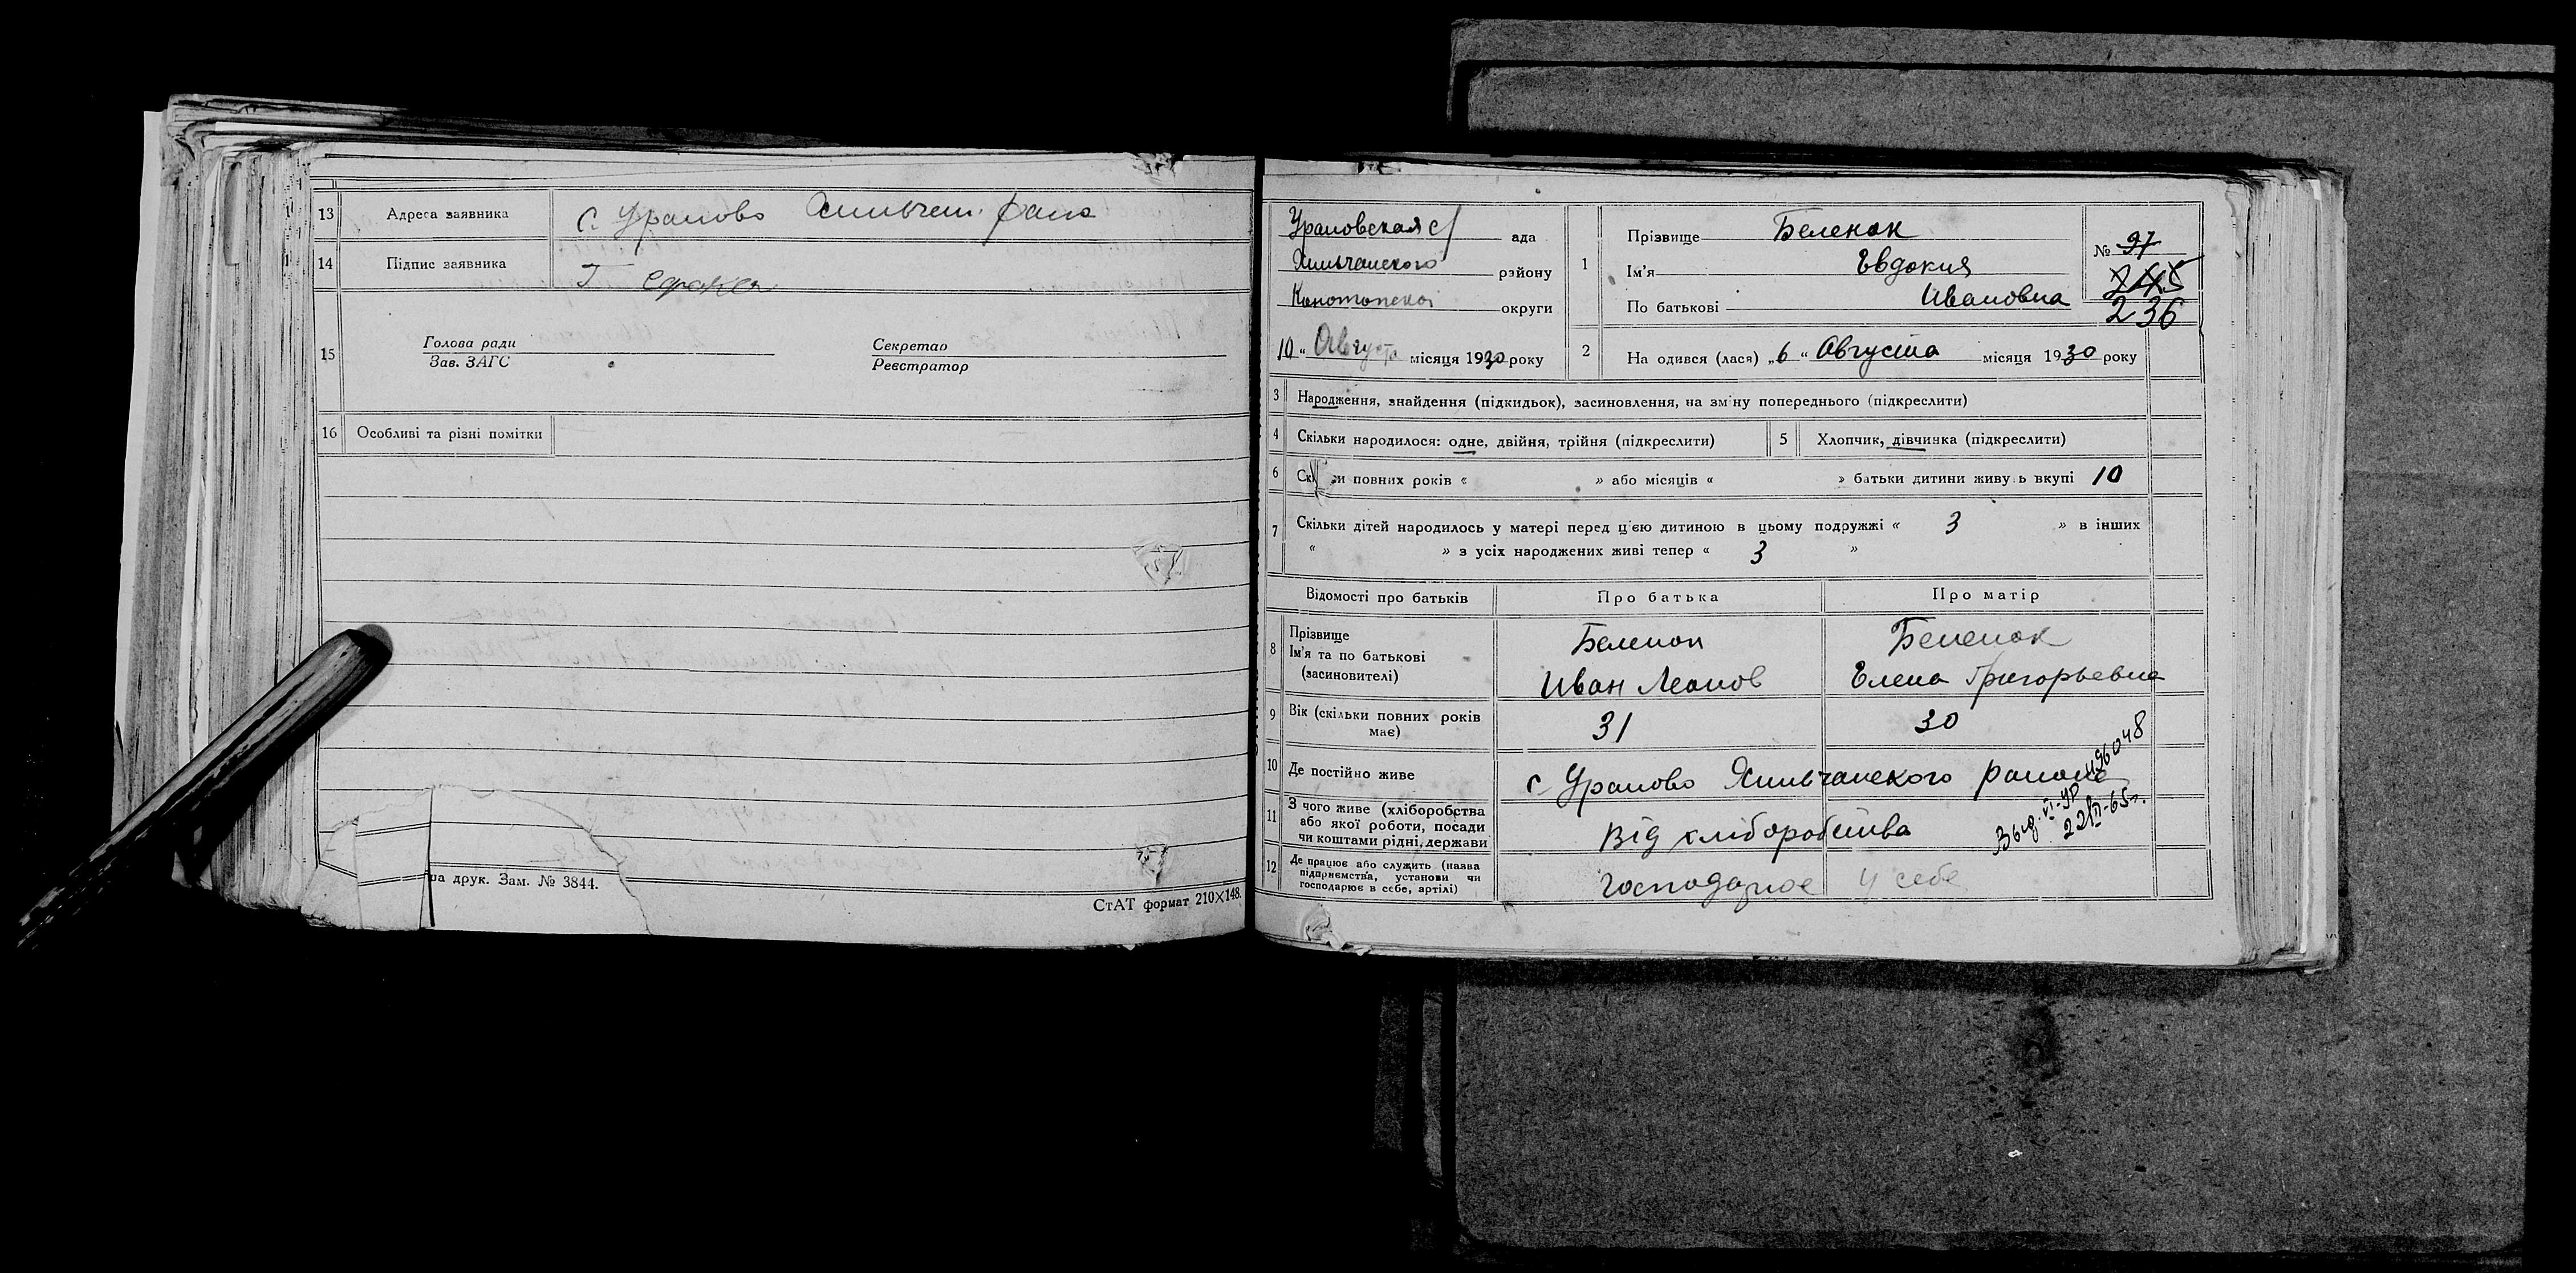 13 Адреса заявника с. Уралово Хильчан. района
14 Підпис заявника
15 Голова ради
Зав. ЗАГС
Секретар
Реєстратор
16 Особливі та різні помітки
на друк. Зам. № 3844.
СтАТ формат 210×148.
Ураловская с/ ада
Хильчанского району
Конотопской округи
10 “ Августа місяця 1930 року
1 Прізвище Беленок
Ім'я Евдокия
По батькові Ивановна
№ 97
245
236
2 На одився (лася) „6“ Августа місяця 1930 року
3 Народження, знайдення (підкидьок), засиновлення, на зміну попереднього (підкреслити)
4 Скільки народилося: одне, двійня, трійня (підкреслити)
5 Хлопчик, дівчинка (підкреслити)
6 Ск и повних років « » або місяців « » батьки дитини живуть вкупі 10
7 Скільки дітей народилось у матері перед цією дитиною в цьому подружжі « 3 » в інших
« » з усіх народжених живі тепер « 3 »
Відомості про батьків Про батька Про матір
8 Прізвище
Ім'я та по батькові
(засиновителі)
Беленок
Иван Леонов
Беленок
Елена Григорьевна
9 Вік (скільки повних років має) 31 30
10 Де постійно живе с. Уралово Хильчанского района
11 З чого живе (хліборобства
або якої роботи, посади
чи коштами рідні, держави
Від хліборобства
12 Де працює або служить (назва
підприємства, установи чи
господарює в себе, артілі)
Господарює у себе
496048
Выд. VI-УР
22/II-65г.